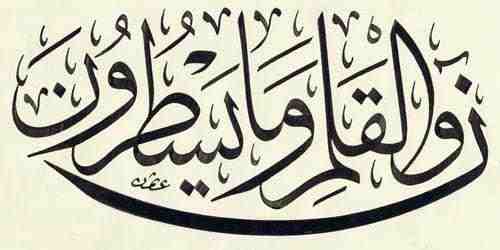 نۤ وَالْقَلَمِ وَمَا يَسْطُرُونَ